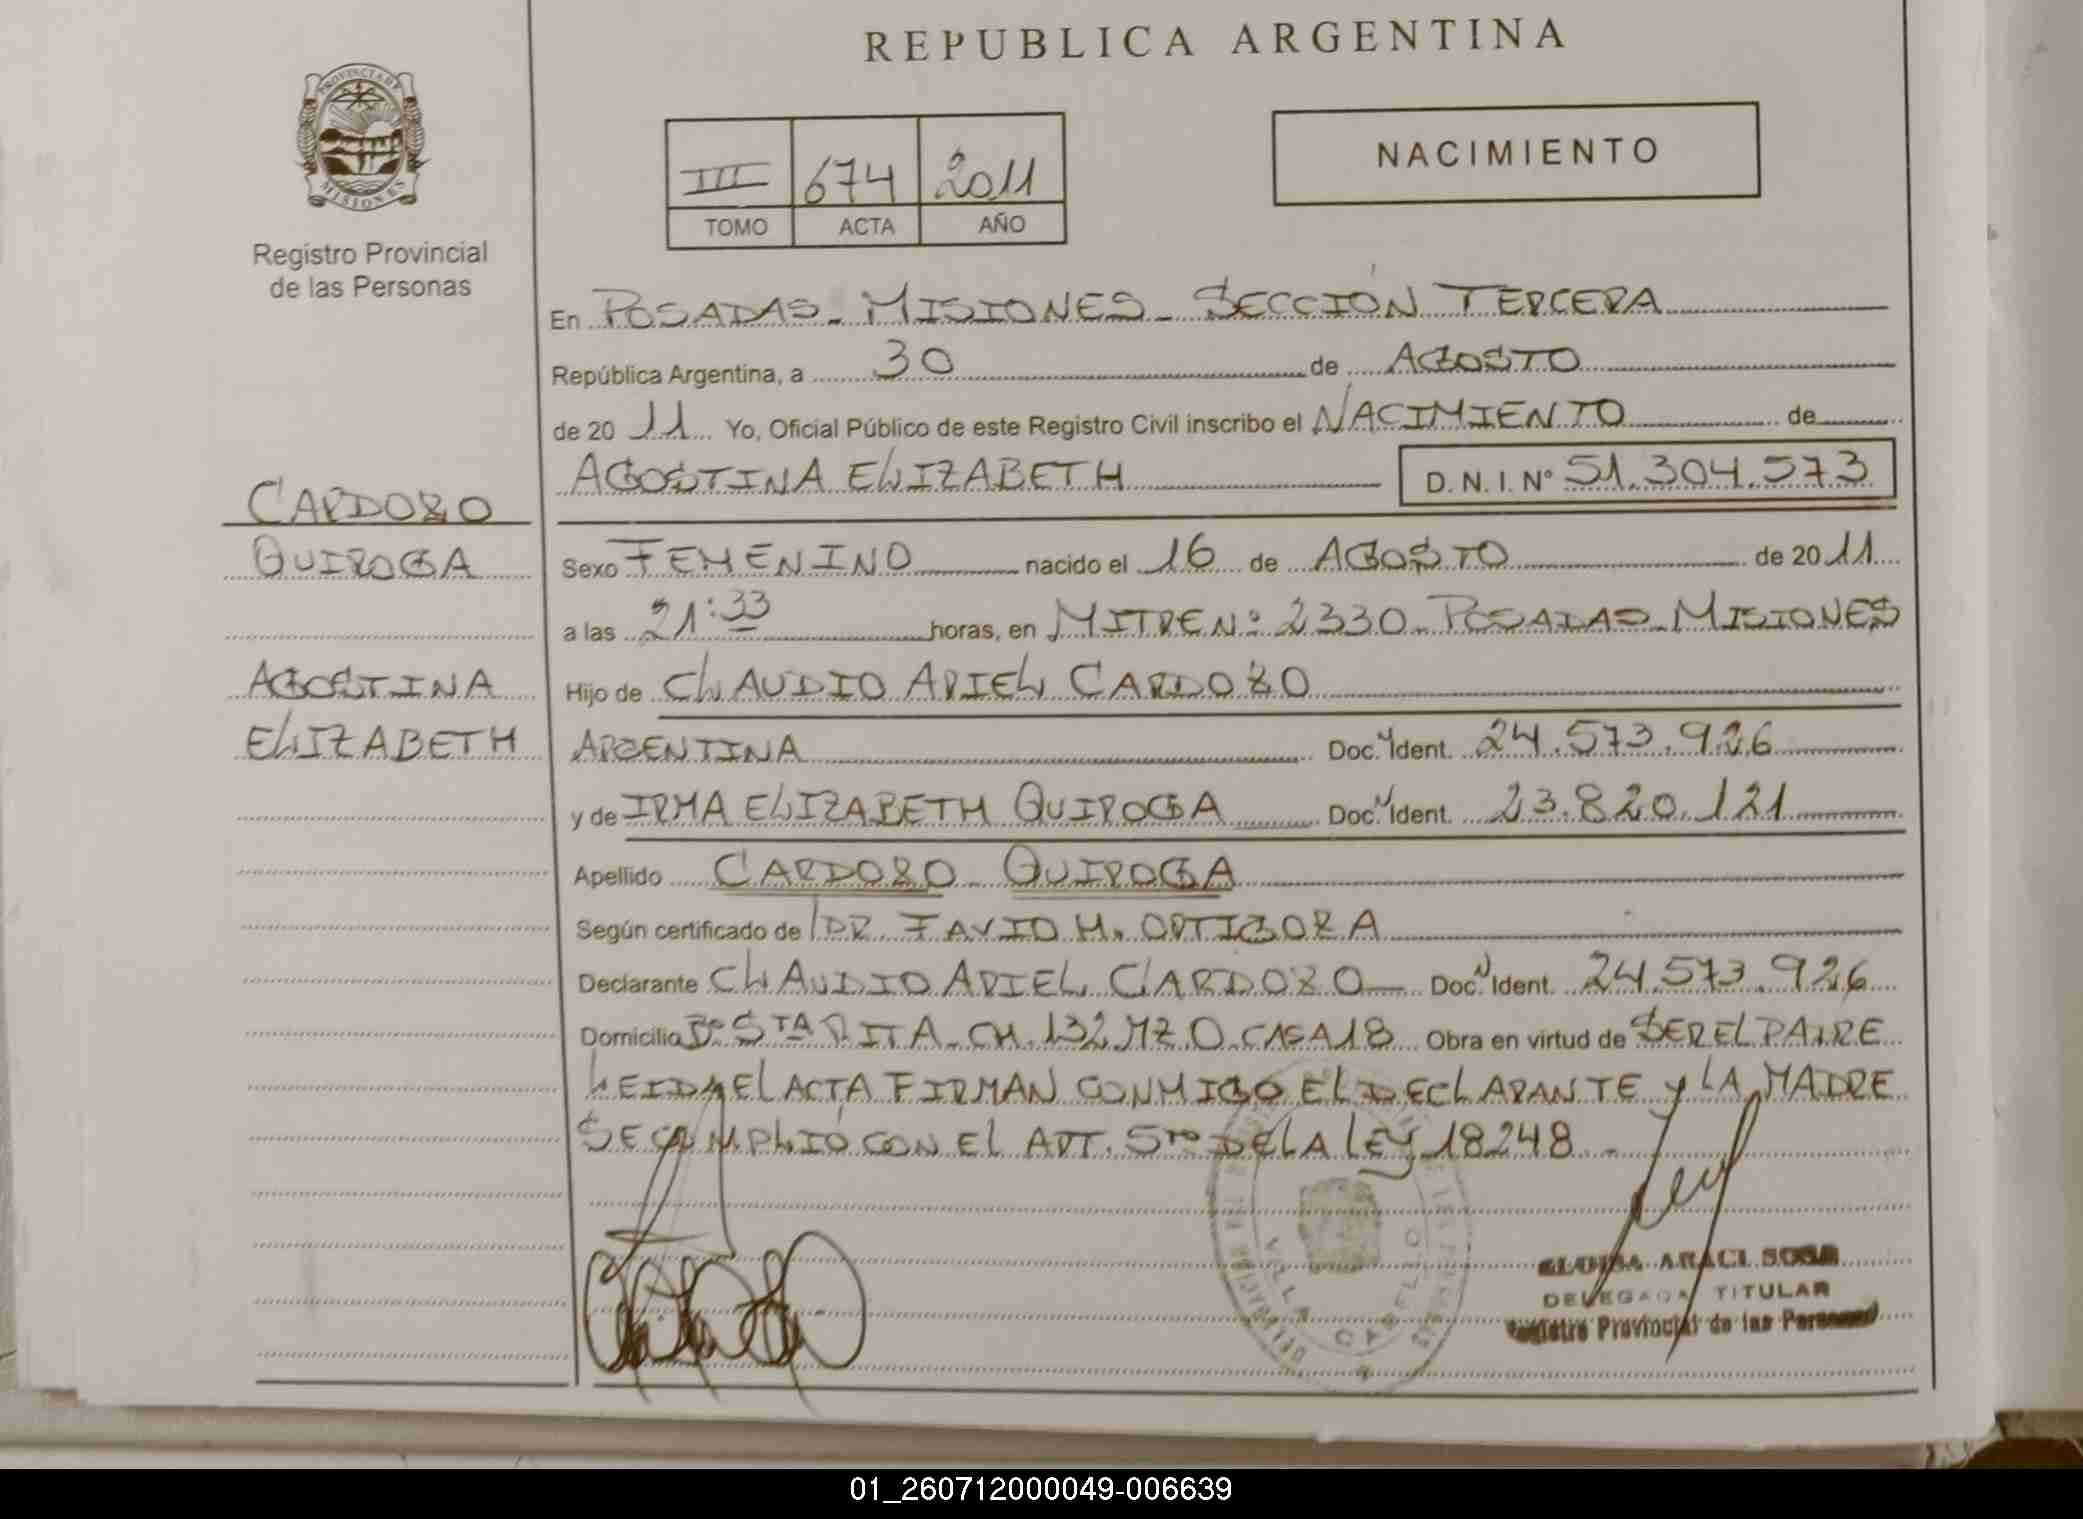 REPUBLICA ARGENTINA
PROVINCIA DE
MISIONES
Registro Provincial
de las Personas
III 674 2011
TOMO ACTA AÑO
NACIMIENTO
En POSADAS - MISIONES - SECCIÓN TERCERA
República Argentina, a 30 de AGOSTO
de 2011 Yo, Oficial Público de este Registro Civil inscribo el NACIMIENTO de
AGOSTINA ELIZABETH D.N.I. Nº 51.304.573
CARDOZO
QUIROGA
AGOSTINA
ELIZABETH
Sexo FEMENINO nacido el 16 de AGOSTO de 2011
a las 21:33 horas, en MITRE Nº 2330 - POSADAS - MISIONES
Hijo de CLAUDIO ARIEL CARDOZO
ARGENTINA Doc. Ident. 24.573.926
y de IRMA ELIZABETH QUIROGA Doc. Ident. 23.820.121
Apellido CARDOZO QUIROGA
Según certificado de DR. FAVIO H. ORTIGOZA
Declarante CLAUDIO ARIEL CARDOZO Doc. Ident. 24.573.926
Domicilio Bº STA RITA - CH. 132 MZ O. CASA 18 Obra en virtud de SER EL PADRE
LEIDA EL ACTA FIRMAN CONMIGO EL DECLARANTE Y LA MADRE
SE CUMPLIÓ CON EL ART. 5to DE LA LEY 18248 -
VILLA CABELLO
ARACI SOSA
DELEGADA TITULAR
Registro Provincial de las Personas
01_260712000049-006639